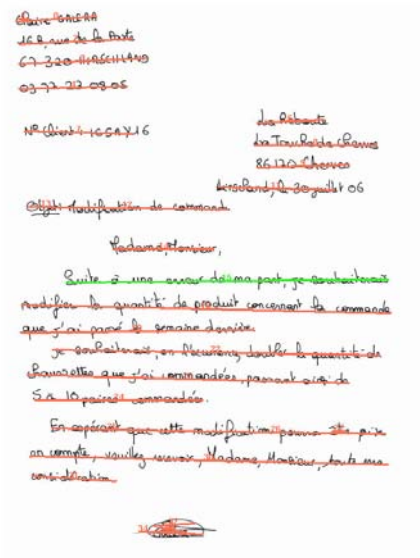 Claire GALERA
168, rue de la Poste
67 320 HIRSCHLAND
03 77 27 08 05
N° Client : IGSAY16
La Réboute
La Touche de Charves
86 170 Charves
le 30 juillet 06
Objet : Modification de commande
Madame, Monsieur,
Suite à une erreur de ma part, je souhaiterais
modifier la quantité de produit concernant la commande
que j'ai passé la semaine dernière.
Je souhaiterais, en l'occurence, doubler la quantité de
chaussettes que j'ai commandées, passant ainsi de
5 à 10 paires commandées.
En espérant que cette modification pourra être prise
en compte, veuillez recevoir, Madame, Monsieur, toute ma
considération.